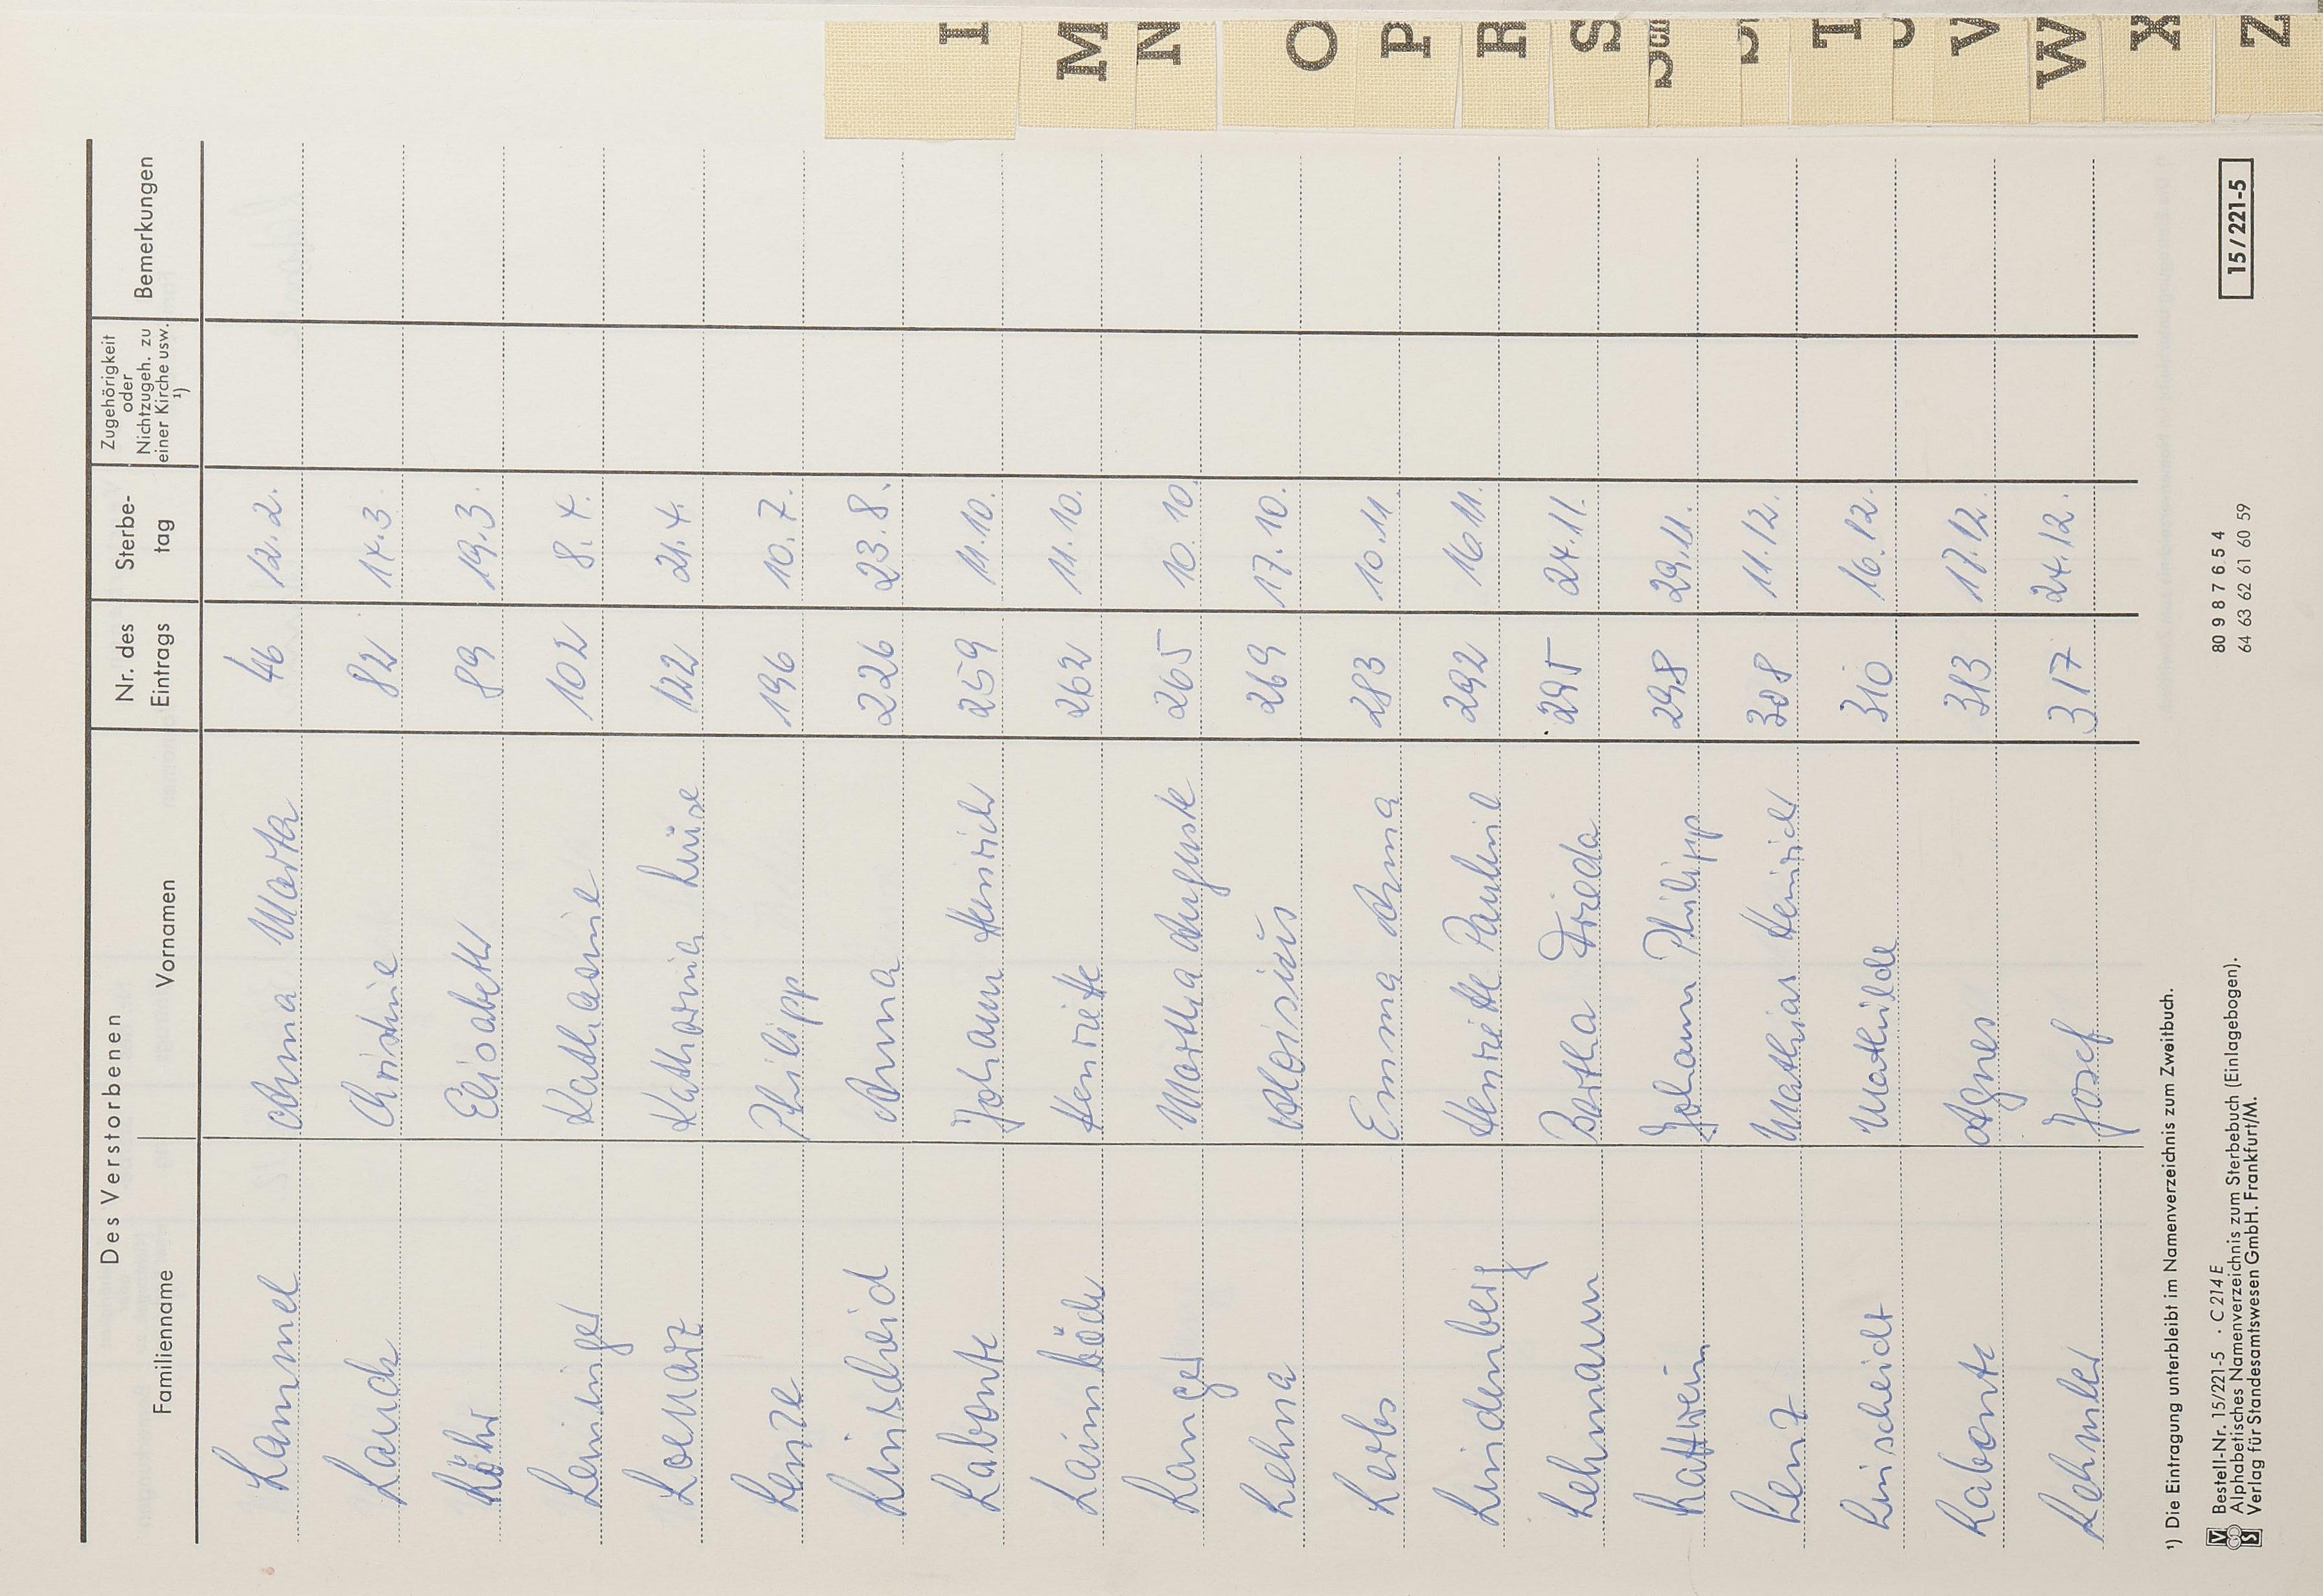 Des Verstorbenen
Familienname Vornamen Nr. des Eintrags Sterbe-tag Zugehörigkeit oder Nichtzugeh. zu einer Kirche usw. ¹) Bemerkungen
Lammel Anna Marta 46 12.2.
Lauck Christine 82 14.3.
Löhr Elisabeth 89 19.3.
Leininger Katharine 102 8.4.
Loenarz Katharina Luise 122 21.4.
Lenze Philipp 196 10.7.
Linscheid Anna 226 23.8.
Labonte Johann Heinrich 259 11.10.
Laimböck Henriette 262 11.10.
Langer Martha Auguste 265 10.10.
Lehna Aloisius 269 17.10.
Lerbs Emma Anna 283 10.11.
Lindenberg Henriette Pauline 292 16.11.
Lehmann Bertha Frieda 295 24.11.
Lattwein Johann Philipp 298 29.11.
Lenz Mathias Heinrich 308 11.12.
Linscheidt Mathilde 310 16.12.
Labonte Agnes 313 17.12.
Lehmler Josef 317 24.12.
¹) Die Eintragung unterbleibt im Namenverzeichnis zum Zweitbuch.
VS Bestell-Nr. 15/221-5 · C 214 E
Alphabetisches Namenverzeichnis zum Sterbebuch (Einlagebogen).
Verlag für Standesamtswesen GmbH. Frankfurt/M.
80 9 8 7 6 5 4
64 63 62 61 60 59
15/221-5
L
M
N
O
P
R
S
Sch
T
V
W
X
Z